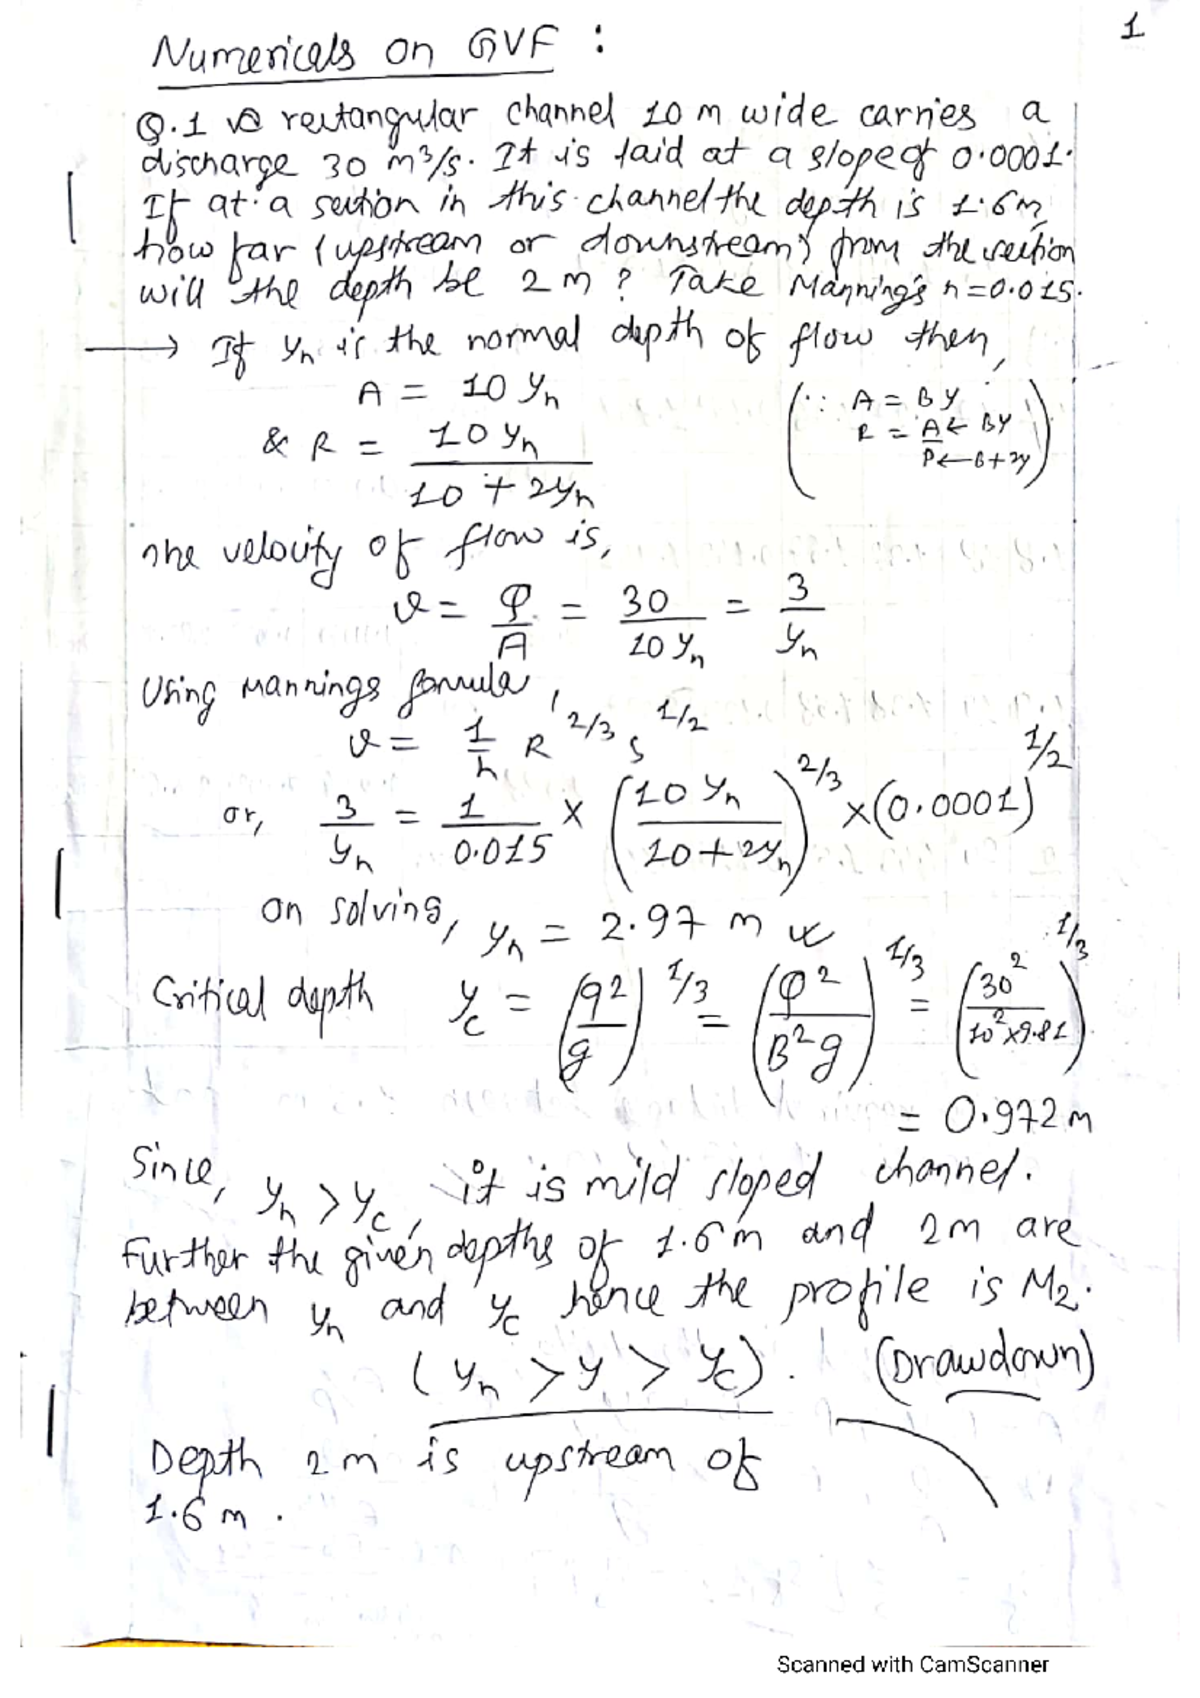 1
Numericals on GVF :
Q.1 A rectangular channel 10 m wide carries a
discharge 30 m³/s. It is laid at a slope of 0.0001.
If at a section in this channel the depth is 1.6m,
how far (upstream or downstream) from the section
will the depth be 2 m ? Take Manning's n=0.015.
→ If yn is the normal depth of flow then,
A = 10 yn
(∵ A = By
& R = 10 yn / (10 + 2yn)
R = A/P ← By / ← B+2y)
The velocity of flow is,
v = Q/A = 30/(10 yn) = 3/yn
Using Mannings formula,
v = 1/n R^2/3 S^1/2
or, 3/yn = 1/0.015 × (10 yn / (10+2yn))^2/3 × (0.0001)^1/2
on solving, yn = 2.97 m
Critical depth yc = (q²/g)^1/3 = (Q²/B²g)^1/3 = (30²/10²×9.81)^1/3
= 0.972 m
Since, yn > yc, it is mild sloped channel.
Further the given depths of 1.6m and 2m are
between yn and yc hence the profile is M2.
(yn > y > yc). (Drawdown)
Depth 2 m is upstream of
1.6 m.
Scanned with CamScanner